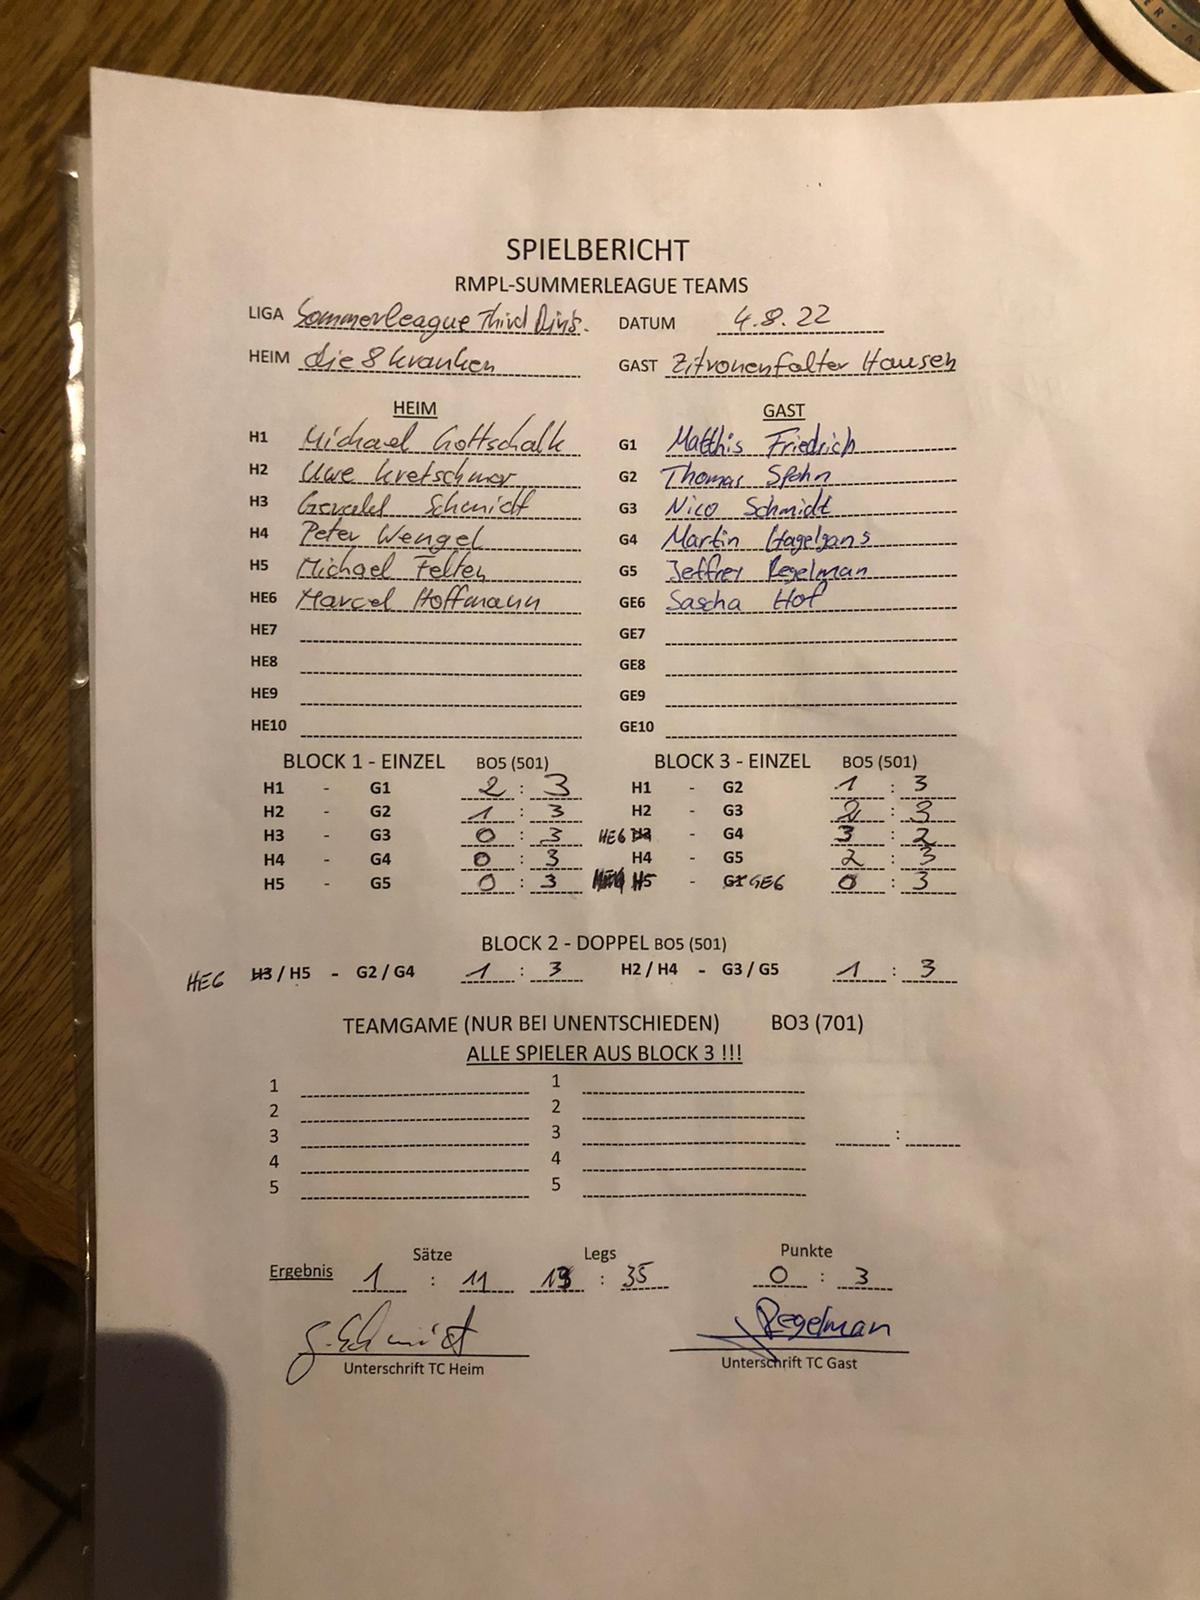 SPIELBERICHT
RMPL-SUMMERLEAGUE TEAMS
LIGA Sommerleague Third DATUM 4.8.22
HEIM die 8 kranken GAST Zitronenfalter Hausen
HEIM GAST
H1 Michael Gottschalk G1 Matthis Friedrich
H2 Uwe Kretschmar G2 Thomas Spohn
H3 Gerald Schmidt G3 Nico Schmidt
H4 Peter Wengel G4 Martin Hagelgans
H5 Michael Felten G5 Jeffrey Regelman
HE6 Marcel Hoffmann GE6 Sascha Hof
HE7 GE7
HE8 GE8
HE9 GE9
HE10 GE10
BLOCK 1 - EINZEL BO5 (501) BLOCK 3 - EINZEL BO5 (501)
H1 - G1 2 : 3 H1 - G2 1 : 3
H2 - G2 1 : 3 H2 - G3 2 : 3
H3 - G3 0 : 3 HE6 H3 - G4 3 : 2
H4 - G4 0 : 3 H4 - G5 2 : 3
H5 - G5 0 : 3 H5 - G1 GE6 0 : 3
BLOCK 2 - DOPPEL BO5 (501)
HE6 H3 / H5 - G2 / G4 1 : 3 H2 / H4 - G3 / G5 1 : 3
TEAMGAME (NUR BEI UNENTSCHIEDEN) BO3 (701)
ALLE SPIELER AUS BLOCK 3 !!!
1 1
2 2
3 3 :
4 4
5 5
Sätze Legs Punkte
Ergebnis 1 : 11 13 : 35 0 : 3
G. Schmidt Regelman
Unterschrift TC Heim Unterschrift TC Gast